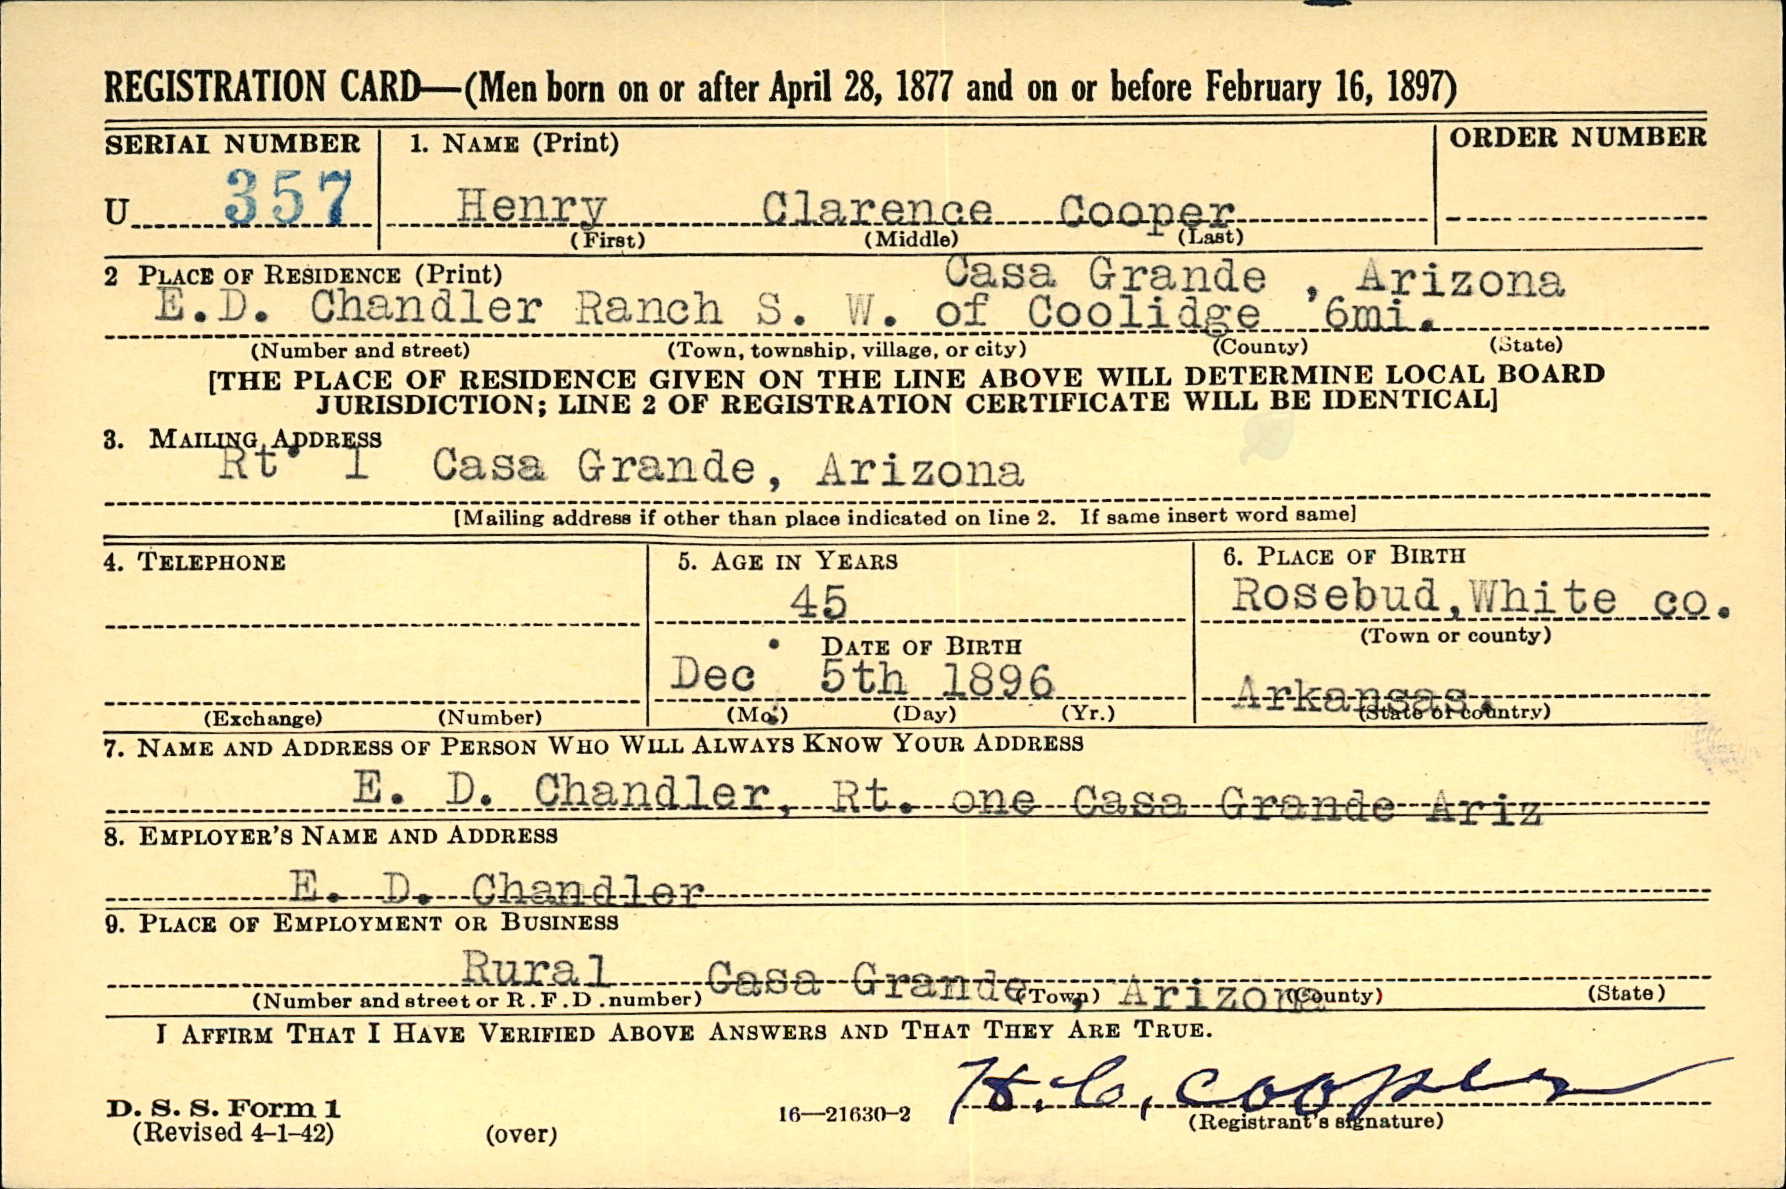 REGISTRATION CARD—(Men born on or after April 28, 1877 and on or before February 16, 1897)
SERIAL NUMBER 1. NAME (Print) ORDER NUMBER
U 357 Henry Clarence Cooper
(First) (Middle) (Last)
2 PLACE OF RESIDENCE (Print) Casa Grande , Arizona
E.D. Chandler Ranch S. W. of Coolidge 6mi.
(Number and street) (Town, township, village, or city) (County) (State)
[THE PLACE OF RESIDENCE GIVEN ON THE LINE ABOVE WILL DETERMINE LOCAL BOARD
JURISDICTION; LINE 2 OF REGISTRATION CERTIFICATE WILL BE IDENTICAL]
3. MAILING ADDRESS
Rt. 1 Casa Grande, Arizona
[Mailing address if other than place indicated on line 2. If same insert word same]
4. TELEPHONE 5. AGE IN YEARS 6. PLACE OF BIRTH
45 Rosebud,White co.
DATE OF BIRTH (Town or county)
Dec. 5th 1896 Arkansas.
(Exchange) (Number) (Mo.) (Day) (Yr.) (State or country)
7. NAME AND ADDRESS OF PERSON WHO WILL ALWAYS KNOW YOUR ADDRESS
E. D. Chandler, Rt. one Casa Grande Ariz
8. EMPLOYER'S NAME AND ADDRESS
E. D. Chandler
9. PLACE OF EMPLOYMENT OR BUSINESS
Rural Casa Grande, Arizona
(Number and street or R.F.D. number) (Town) (County) (State)
I AFFIRM THAT I HAVE VERIFIED ABOVE ANSWERS AND THAT THEY ARE TRUE.
H. C. Cooper
D. S. S. Form 1 16—21630-2 (Registrant's signature)
(Revised 4-1-42) (over)